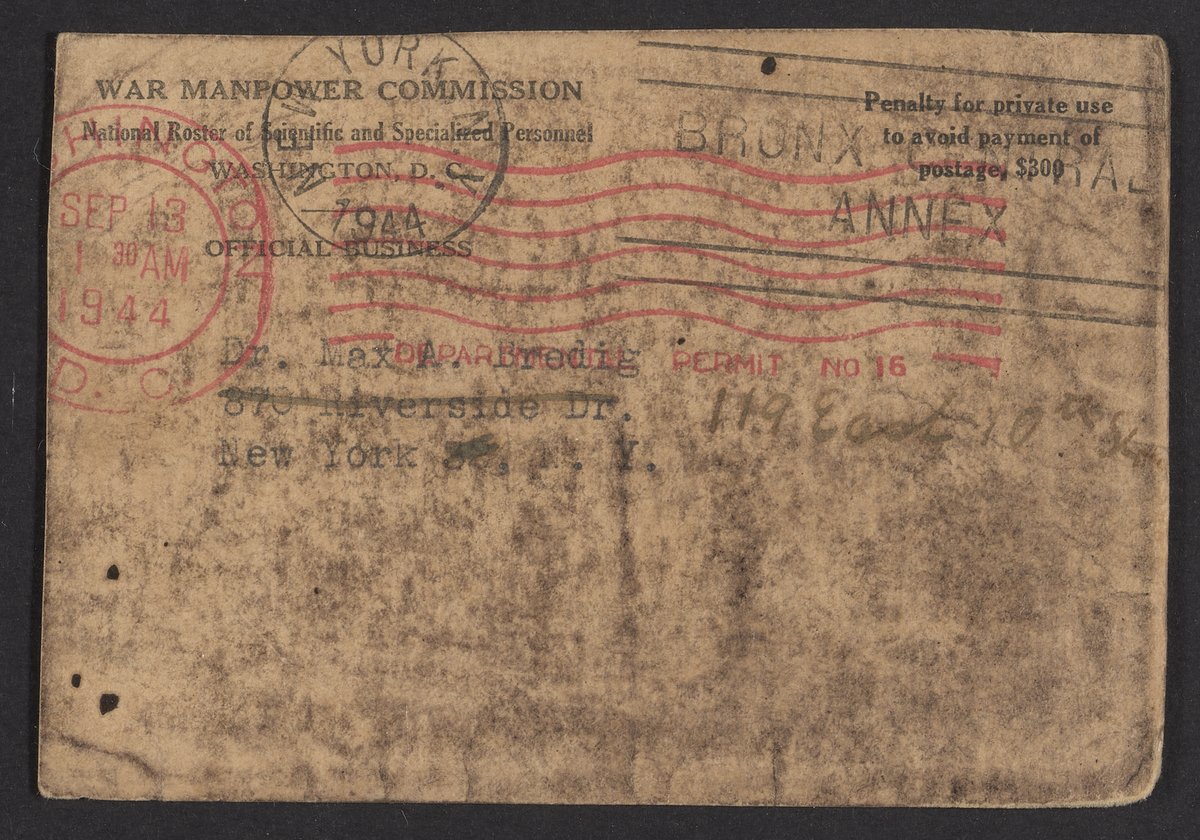 WAR MANPOWER COMMISSION
National Roster of Scientific and Specialized Personnel
WASHINGTON, D. C.
OFFICIAL BUSINESS
Penalty for private use
to avoid payment of
postage, $300
NEW YORK, N.Y.
1944
BRONX CENTRAL
ANNEX
WASHINGTON
SEP 13
1 30 AM
1944
D. C.
PERMIT NO 16
Dr. Max A. Bredig
870 Riverside Dr.
119 East 10th St
New York , N. Y.